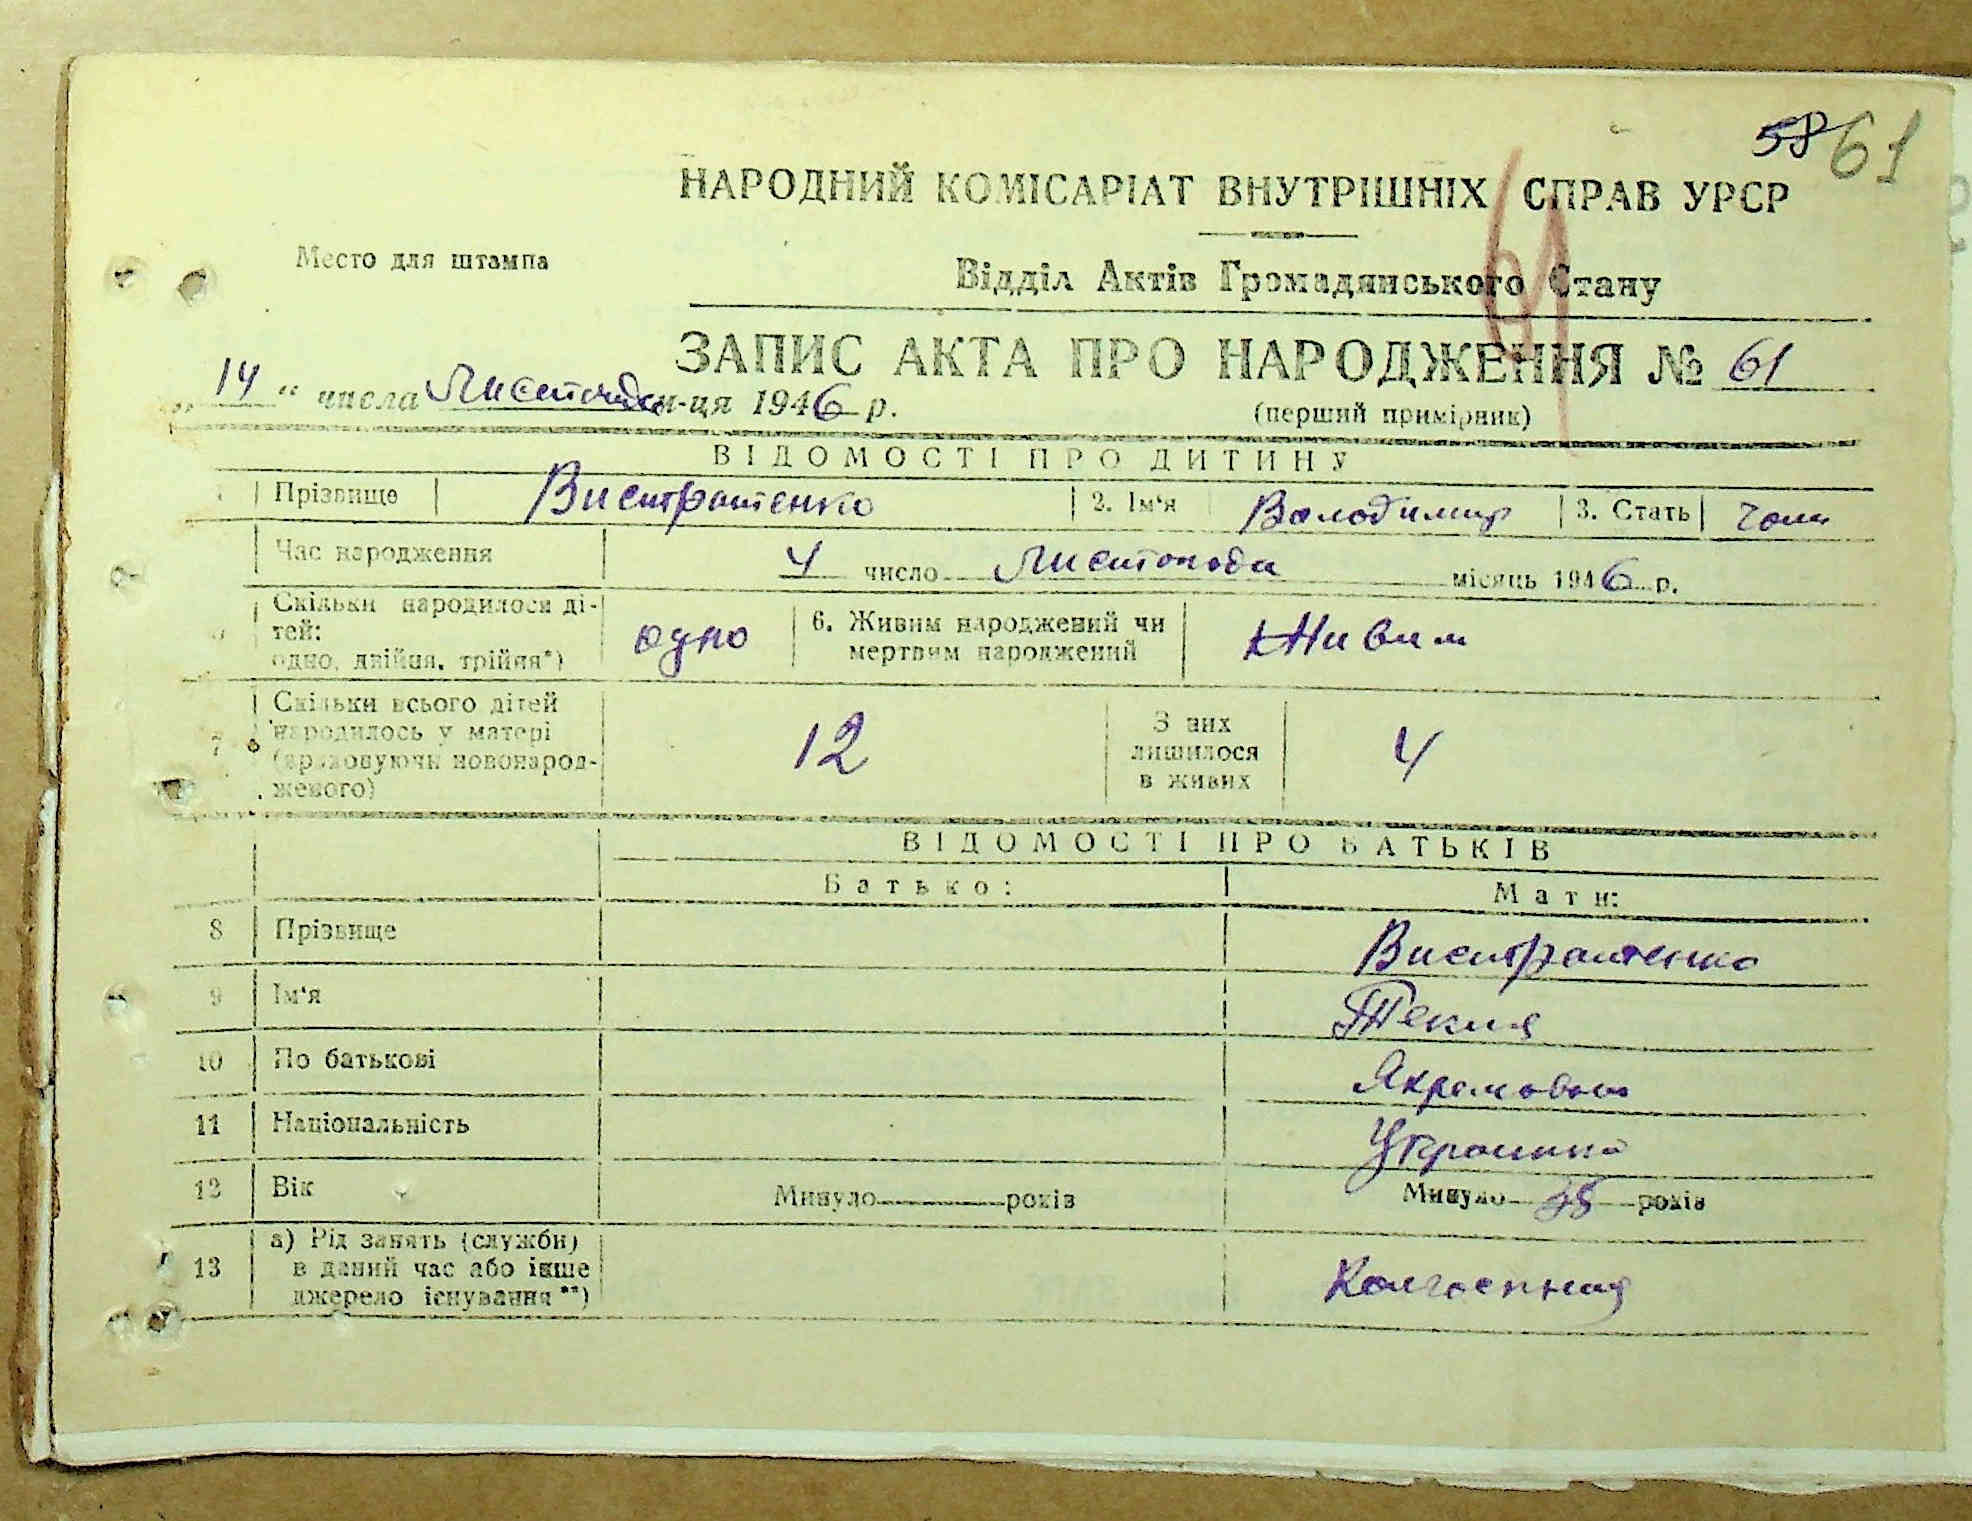 58 61
НАРОДНИЙ КОМІСАРІАТ ВНУТРІШНІХ СПРАВ УРСР
61
Место для штампа
Відділ Актів Громадянського Стану
ЗАПИС АКТА ПРО НАРОДЖЕННЯ № 61
„14“ числа Листопада м-ця 1946 р.
(перший примірник)
ВІДОМОСТІ ПРО ДИТИНУ
Прізвище Вистратенко 2. Ім‘я Володимир 3. Стать чол
Час народження 4 число Листопада місяць 1946 р.
Скільки народилося ді-
тей:
одно, двійня, трійня*) одно 6. Живим народжений чи
мертвим народжений Живим
7 Скільки всього дітей
народилось у матері
(враховуючи новонарод-
женого) 12 З них
лишилося
в живих 4
ВІДОМОСТІ ПРО БАТЬКІВ
Батько: Мати:
8 Прізвище Вистратенко
9 Ім‘я Текля
10 По батькові Якремовна
11 Національність Українка
12 Вік Минуло років Минуло років
13 а) Рід занять (служби)
в даний час або інше
джерело існування**) Колгоспниця